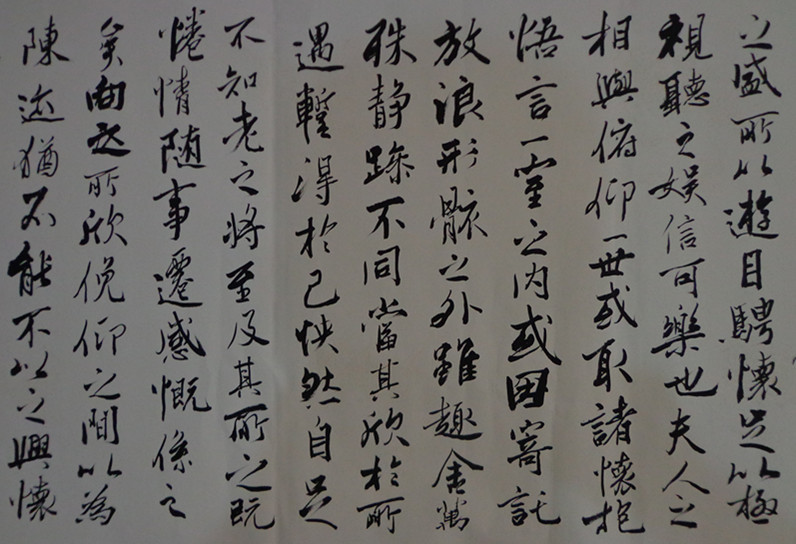 之盛所以遊目騁懷足以極
視聽之娛信可樂也夫人之
相與俯仰一世或取諸懷抱
悟言一室之內或因寄託
放浪形骸之外雖趣舍萬
殊靜躁不同當其欣於所
遇蹔得於己怏然自足
不知老之將至及其所之既
惓情隨事遷感慨係之
矣向之所欣俛仰之間以為
陳迹猶不能不以之興懷